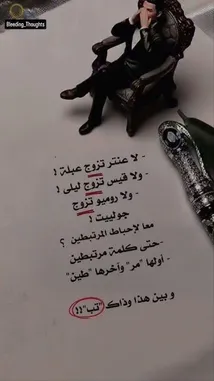 Bleeding_Thoughts
- لا عنتر تزوج عبلة !
- ولا قيس تزوج ليلى !
- ولا روميو تزوج
جولييت !
معا لإحباط المرتبطين ؟
-حتى كلمة مرتبطين
- أولها "مر" وآخرها "طين"
و بين هذا وذاك "تب"!!